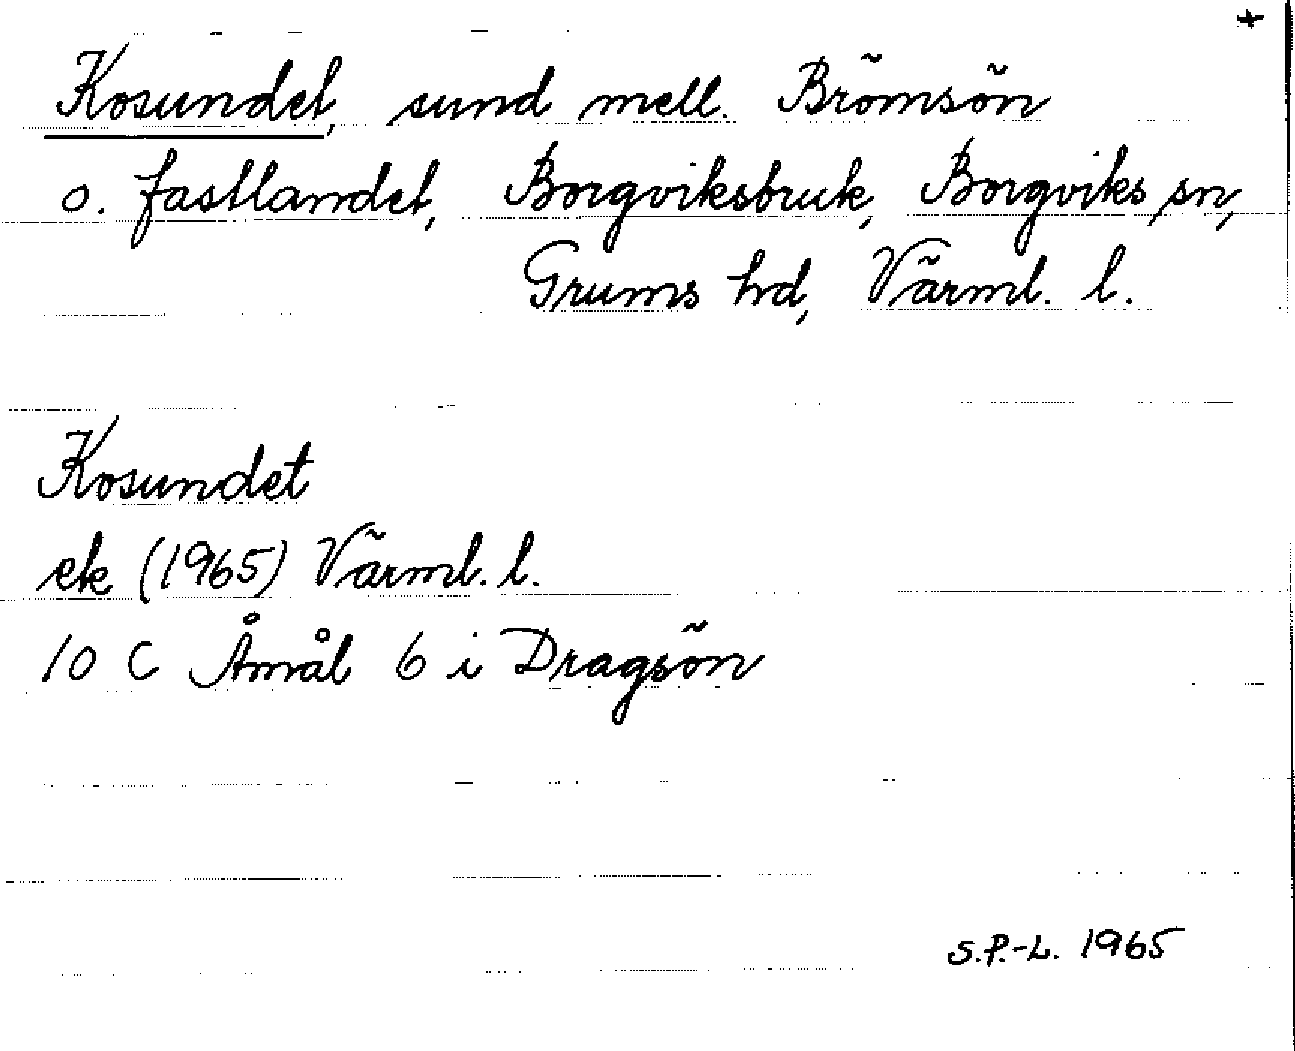 +
Kosundet, sund mell. Brömsön
o. fastlandet, Borgviksbruk, Borgviks sn,
Grums hd, Värml. l.
Kosundet
ek (1965) Värml. l.
10 C Åmål 6 i Dragsön
S.P.-L. 1965